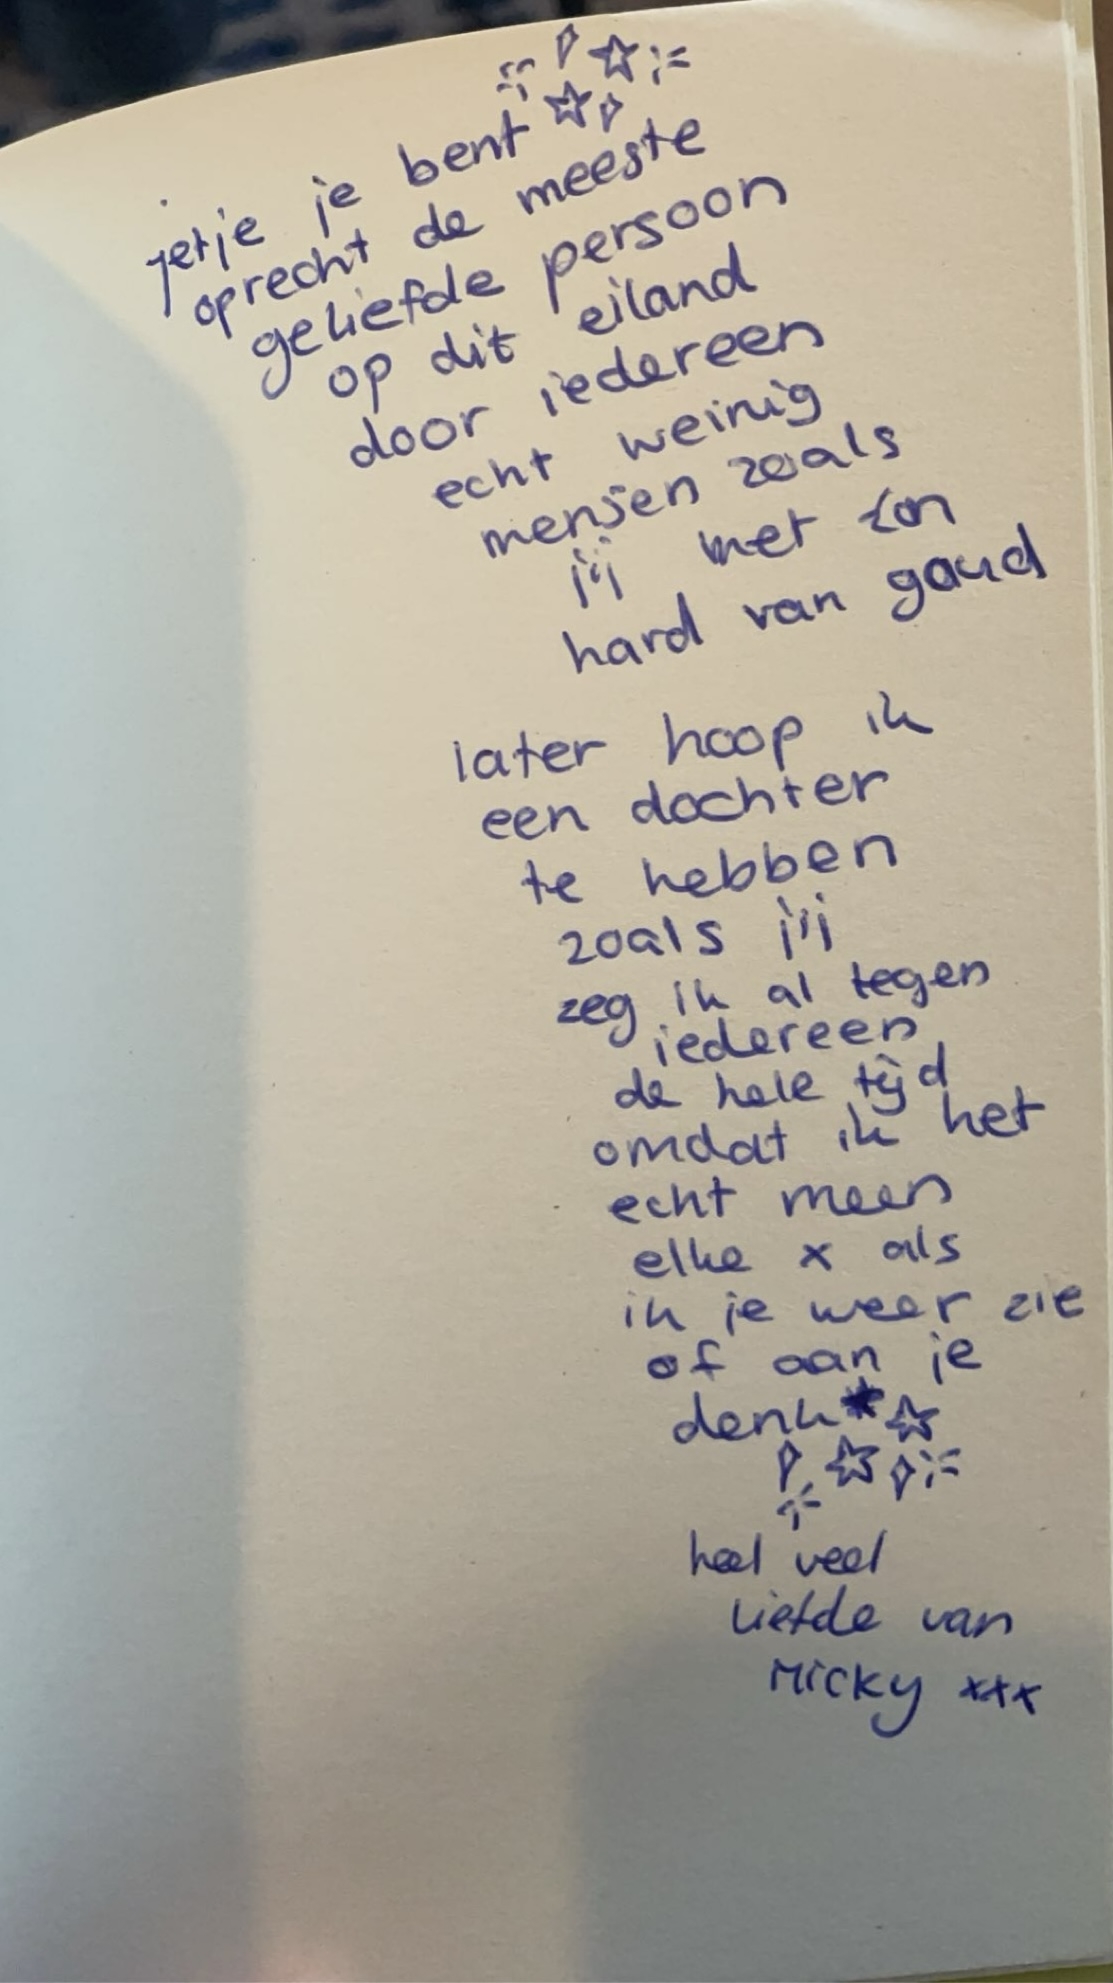 jetje je bent
oprecht de meeste
geliefde persoon
op dit eiland
door iedereen
echt weinig
mensen zoals
jij met zon
hard van goud
later hoop ik
een dochter
te hebben
zoals jij
zeg ik al tegen
iedereen
de hele tijd
omdat ik het
echt meen
elke x als
ik je weer zie
of aan je
denk
heel veel
liefde van
Micky xxx